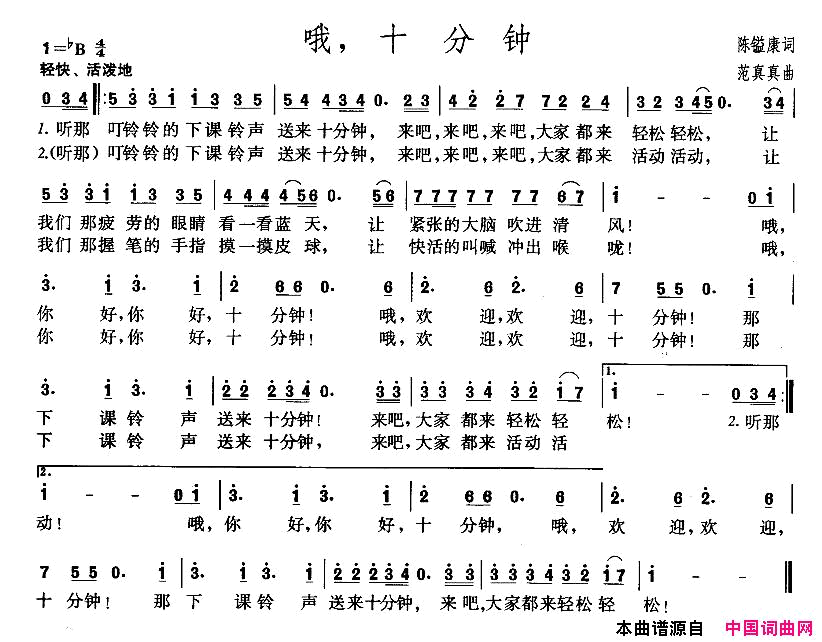 哦，十分钟
1=♭B 4/4
陈镒康词
轻快、活泼地
范真真曲
0 3 4 5 3 3 1 1 3 3 5 5 4 5 4 3 4 3 0· 2 3 4 2 2 7 7 2 2 4 3 2 3 4 5 0· 3 4
1.听那 叮铃铃的 下课铃声 送来十分钟， 来吧，来吧，来吧，大家都来 轻松轻松， 让
2.(听那) 叮铃铃的 下课铃声 送来十分钟， 来吧，来吧，来吧，大家都来 活动活动， 让
5 3 3 1 1 3 3 5 4 4 4 4 5 6 0· 5 6 7 7 7 7 7 7 6 7 1 - - 0 1
我们那疲劳的眼睛看一看蓝天， 让 紧张的大脑吹进清 风！ 哦，
我们那握笔的手指摸一摸皮球， 让 快活的叫喊冲出喉 咙！ 哦，
3· 1 3· 1 2 6 6 0· 6 2· 6 2· 6 7 5 5 0· 1
你 好，你 好，十 分钟！ 哦，欢 迎，欢 迎，十 分钟！ 那
你 好，你 好，十 分钟！ 哦，欢 迎，欢 迎，十 分钟！ 那
1.
3· 1 3· 1 2 2 2 3 4 0· 3 3 3 3 3 4 3 2 1 7 1 - - 0 3 4
下 课铃 声 送来十分钟！ 来吧，大家都来轻松轻 松！ 2.听那
下 课铃 声 送来十分钟， 来吧，大家都来活动活
2.
1 - - 0 1 3· 1 3· 1 2 6 6 0· 6 2· 6 2· 6
动！ 哦，你 好，你 好，十 分钟， 哦，欢 迎，欢 迎，
7 5 5 0· 1 3· 1 3· 1 2 2 2 3 4 0· 3 3 3 3 3 4 3 2 1 7 1 - -
十 分钟！ 那下 课铃 声 送来十分钟， 来吧，大家都来轻松轻 松！
本曲谱源自 中国词曲网